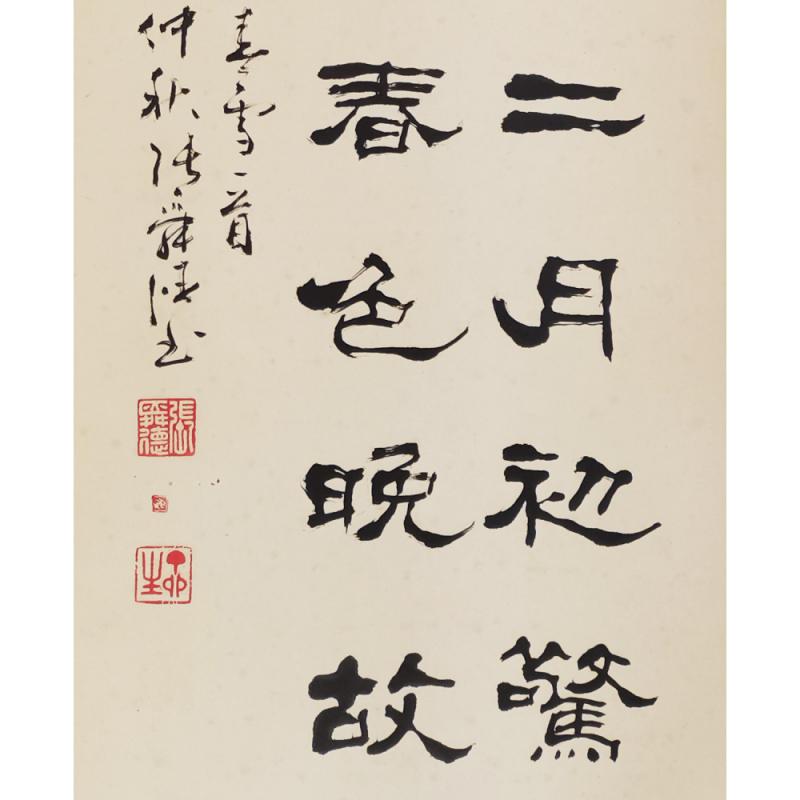 二月初驚
春色晚故
春雪一首
仲秋張舜德書
張印舜德
丁卯生